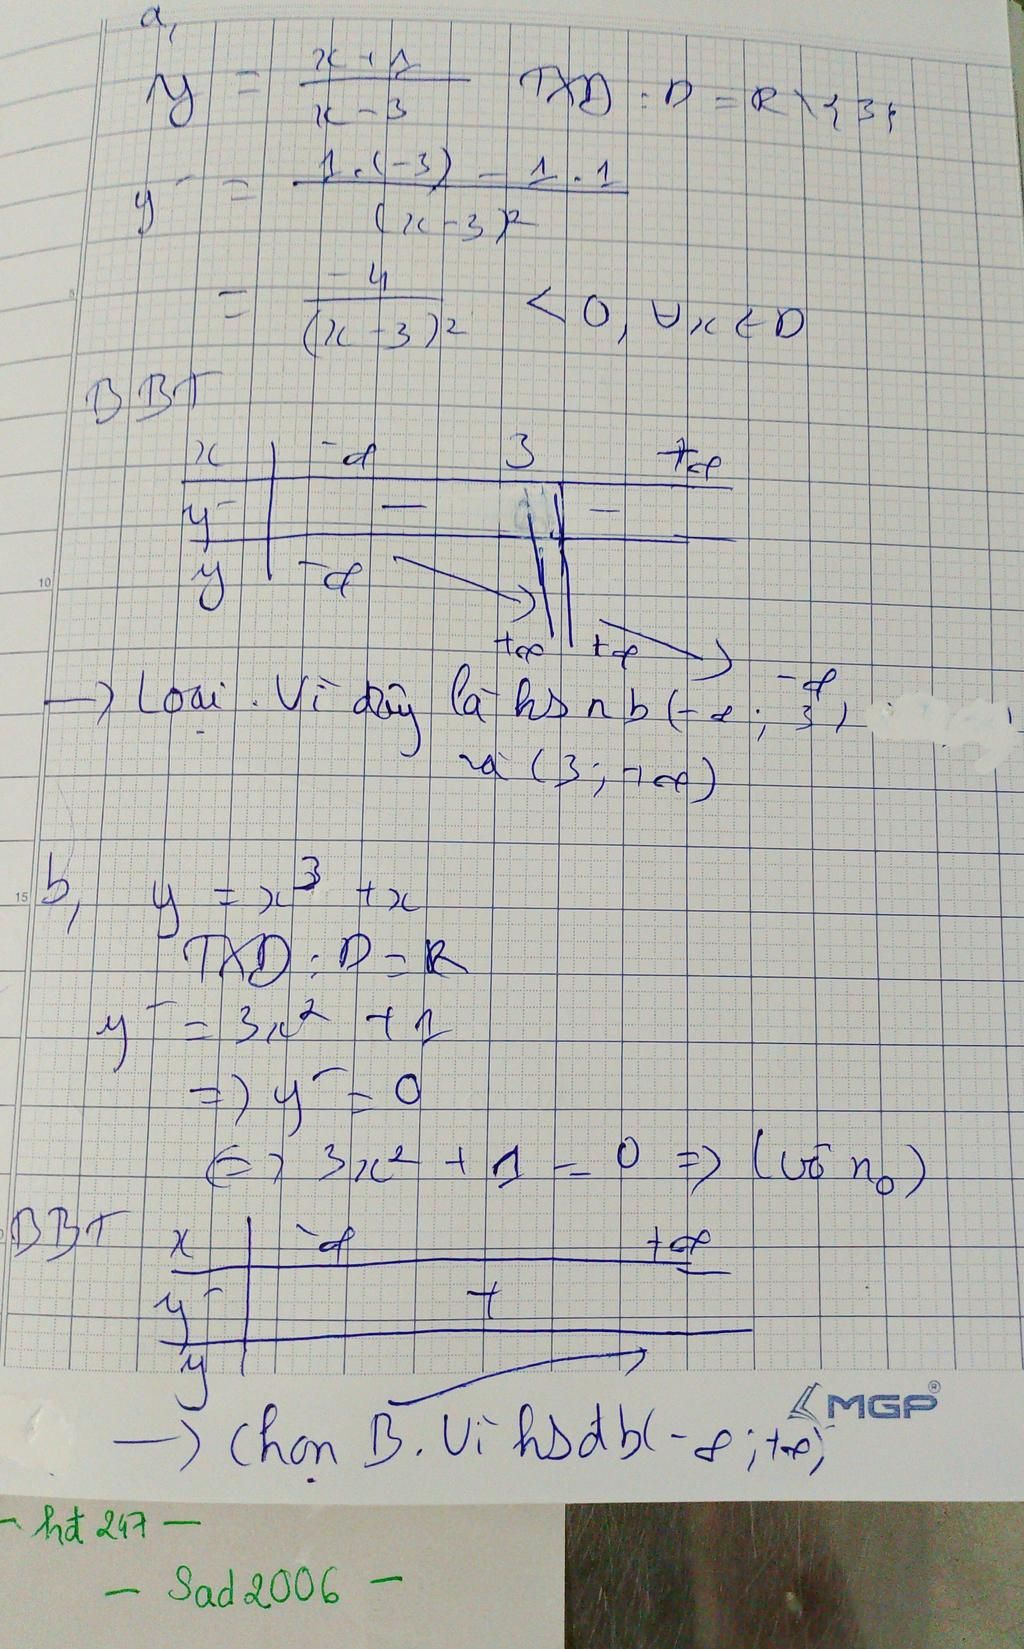 a,
y = x+1 / x-3 TXD : D = R \ {3}
y' = 1.(-3) - 1.1 / (x-3)²
= -4 / (x-3)² < 0, ∀x ∈ D
BBT
x -∞ 3 +∞
y' - -
y -∞ +∞ +∞ -∞
→ Loại. Vì đây là hs nb (-∞; 3)
và (3; +∞)
b, y = x³ + x
TXD : D = R
y' = 3x² + 1
=> y' = 0
<=> 3x² + 1 = 0 => (vô n₀)
BBT x -∞ +∞
y' +
y
MGP®
→ Chọn B. Vì hs đb (-∞; +∞)
- hđ 247 -
- Sad2006 -